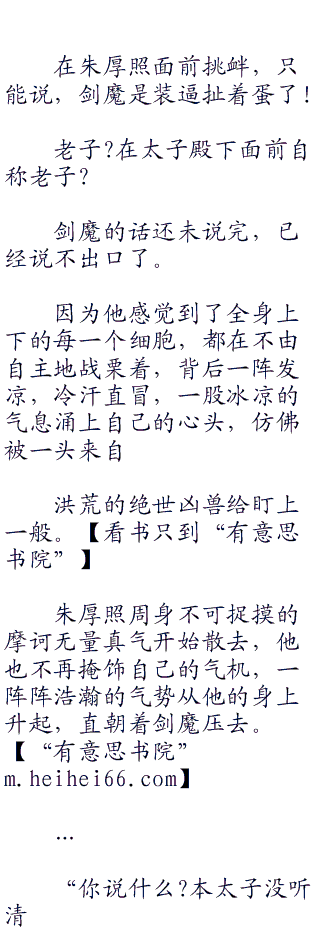 在朱厚照面前挑衅，只
能说，剑魔是装逼扯着蛋了！
老子?在太子殿下面前自
称老子?
剑魔的话还未说完，已
经说不出口了。
因为他感觉到了全身上
下的每一个细胞，都在不由
自主地战栗着，背后一阵发
凉，冷汗直冒，一股冰凉的
气息涌上自己的心头，仿佛
被一头来自
洪荒的绝世凶兽给盯上
一般。【看书只到“有意思
书院”】
朱厚照周身不可捉摸的
摩诃无量真气开始散去，他
也不再掩饰自己的气机，一
阵阵浩瀚的气势从他的身上
升起，直朝着剑魔压去。
【“有意思书院”
m.heihei66.com】
...
“你说什么?本太子没听
清